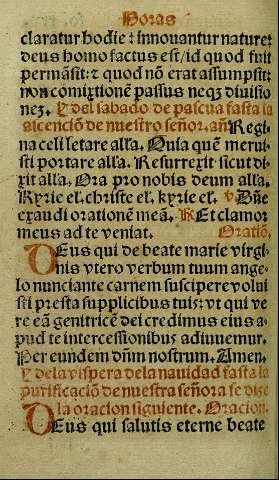 Horas
claratur hodie: innovantur nature:
deus homo factus est/id quod fuit
permãsit: ⁊ quod nõ erat assumpsit:
non comixtionẽ passus neqꝫ diuisio
neꝫ. Y del sabado de pascua fasta la
asicenciõ de nuestro señor. añ Regi-
na celi letare alľa. Quia quẽ merui-
sti portare alľa. Resurrexit sicut di-
xit alľa. Ora pro nobis deum alľa.
Kyrie el. christe el. kyrie el. v. Dñe
exaudi orationẽ meã. R Et clamor
meus ad te veniat. Oratiõ.
DEus qui de beate marie virgi-
nis vtero verbum tuum ange-
lo nunciante carnem suscipere volui
sti presta supplicibus tuis: vt qui ve
re eã genitricẽ dei credimus eius a-
pud te intercessionibꝰ adiuuemur.
Per eundem dñm nostrum. Amen.
Y de la vispera de la nauidad fasta la
purificaciõ de nuestra señora se dize
la oracion siguiente. Oracion.
DEus qui salutis eterne beate